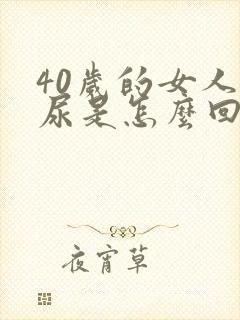 40歲的女人
尿是怎麼回
夜宵草